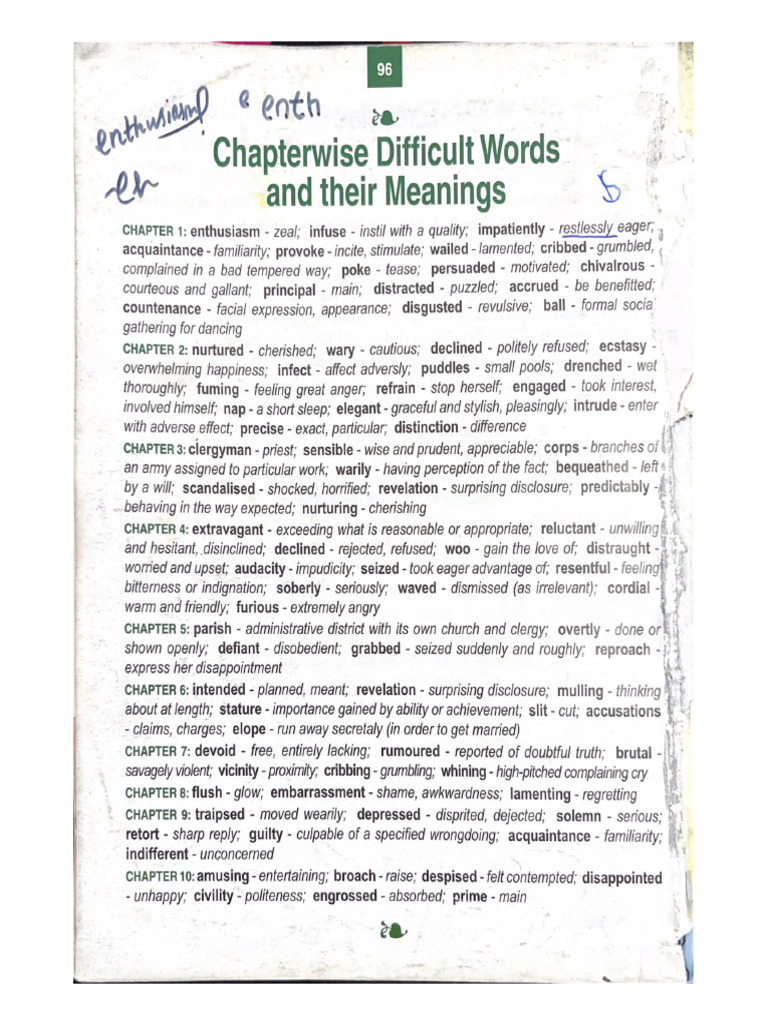 96
enthusiasm
enth
Chapterwise Difficult Words
and their Meanings
CHAPTER 1: enthusiasm - zeal; infuse - instil with a quality; impatiently - restlessly eager;
acquaintance - familiarity; provoke - incite, stimulate; wailed - lamented; cribbed - grumbled,
complained in a bad tempered way; poke - tease; persuaded - motivated; chivalrous -
courteous and gallant; principal - main; distracted - puzzled; accrued - be benefitted;
countenance - facial expression, appearance; disgusted - revulsive; ball - formal socia
gathering for dancing
CHAPTER 2: nurtured - cherished; wary - cautious; declined - politely refused; ecstasy -
overwhelming happiness; infect - affect adversly; puddles - small pools; drenched - wet
thoroughly; fuming - feeling great anger; refrain - stop herself; engaged - took interest,
involved himself; nap - a short sleep; elegant - graceful and stylish, pleasingly; intrude - enter
with adverse effect; precise - exact, particular; distinction - difference
CHAPTER 3: clergyman - priest; sensible - wise and prudent, appreciable; corps - branches of
an army assigned to particular work; warily - having perception of the fact; bequeathed - left
by a will; scandalised - shocked, horrified; revelation - surprising disclosure; predictably -
behaving in the way expected; nurturing - cherishing
CHAPTER 4: extravagant - exceeding what is reasonable or appropriate; reluctant - unwilling
and hesitant, disinclined; declined - rejected, refused; woo - gain the love of; distraught -
worried and upset; audacity - impudicity; seized - took eager advantage of; resentful - feeling
bitterness or indignation; soberly - seriously; waved - dismissed (as irrelevant); cordial -
warm and friendly; furious - extremely angry
CHAPTER 5: parish - administrative district with its own church and clergy; overtly - done or
shown openly; defiant - disobedient; grabbed - seized suddenly and roughly; reproach -
express her disappointment
CHAPTER 6: intended - planned, meant; revelation - surprising disclosure; mulling - thinking
about at length; stature - importance gained by ability or achievement; slit - cut; accusations
- claims, charges; elope - run away secretaly (in order to get married)
CHAPTER 7: devoid - free, entirely lacking; rumoured - reported of doubtful truth; brutal -
savagely violent; vicinity - proximity; cribbing - grumbling; whining - high-pitched complaining cry
CHAPTER 8: flush - glow; embarrassment - shame, awkwardness; lamenting - regretting
CHAPTER 9: traipsed - moved wearily; depressed - disprited, dejected; solemn - serious;
retort - sharp reply; guilty - culpable of a specified wrongdoing; acquaintance - familiarity;
indifferent - unconcerned
CHAPTER 10: amusing - entertaining; broach - raise; despised - felt contempted; disappointed
- unhappy; civility - politeness; engrossed - absorbed; prime - main